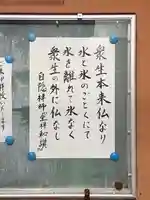 衆生本来仏なり
水と氷のごとくにて
水を離れて氷なく
衆生の外に仏なし
白隠禅師坐禅和讃